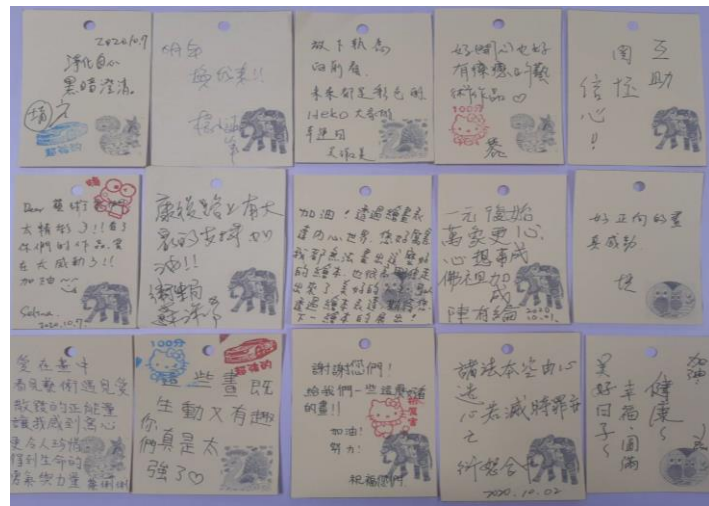 2020.10.7
淨化自心
黑暗澄清。
明年
再來!!
放下執着
向前看
未來都是彩色的
好開心也好
有療癒的藝
術作品♡
100分
互助
信心!
Dear 藝術家們
太精彩了!!看了
你們的作品,實
在太感動了!!
加油~
Selina
2020.10.7
康復路上有大
家的支持 加
油!!
加油!透過繪畫表
達內心世界,
我都無法畫出這麼好
的繪本,也
出來了美好的
透過繪本表達
下一繪本的展出!
一元復始
萬象更心
心想事成
佛祖加
陳有綸
2020.
10.7.
好正向的畫
真感動
愛在畫中
看見藝術遇見愛
散發的正能量
讓我感到窩心
更令人珍惜
得到生命的
勇氣與力量
100分
超強的
這些畫既
生動又有趣
你們真是太
強了♡
謝謝您們!
給我們一些這麼
的畫!!
加油!
努力!
祝福您們
諸法本空由心
造
心若滅時罪亦
亡
2020.10.02
加油!
健康~
幸福、圓滿
美好日子~